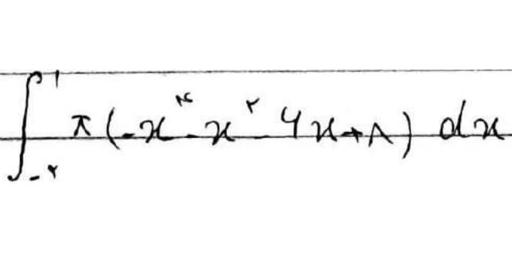 ∫_{-۲}^{۱} π(-x^۴ - x^۲ - ۶x + ۸) dx